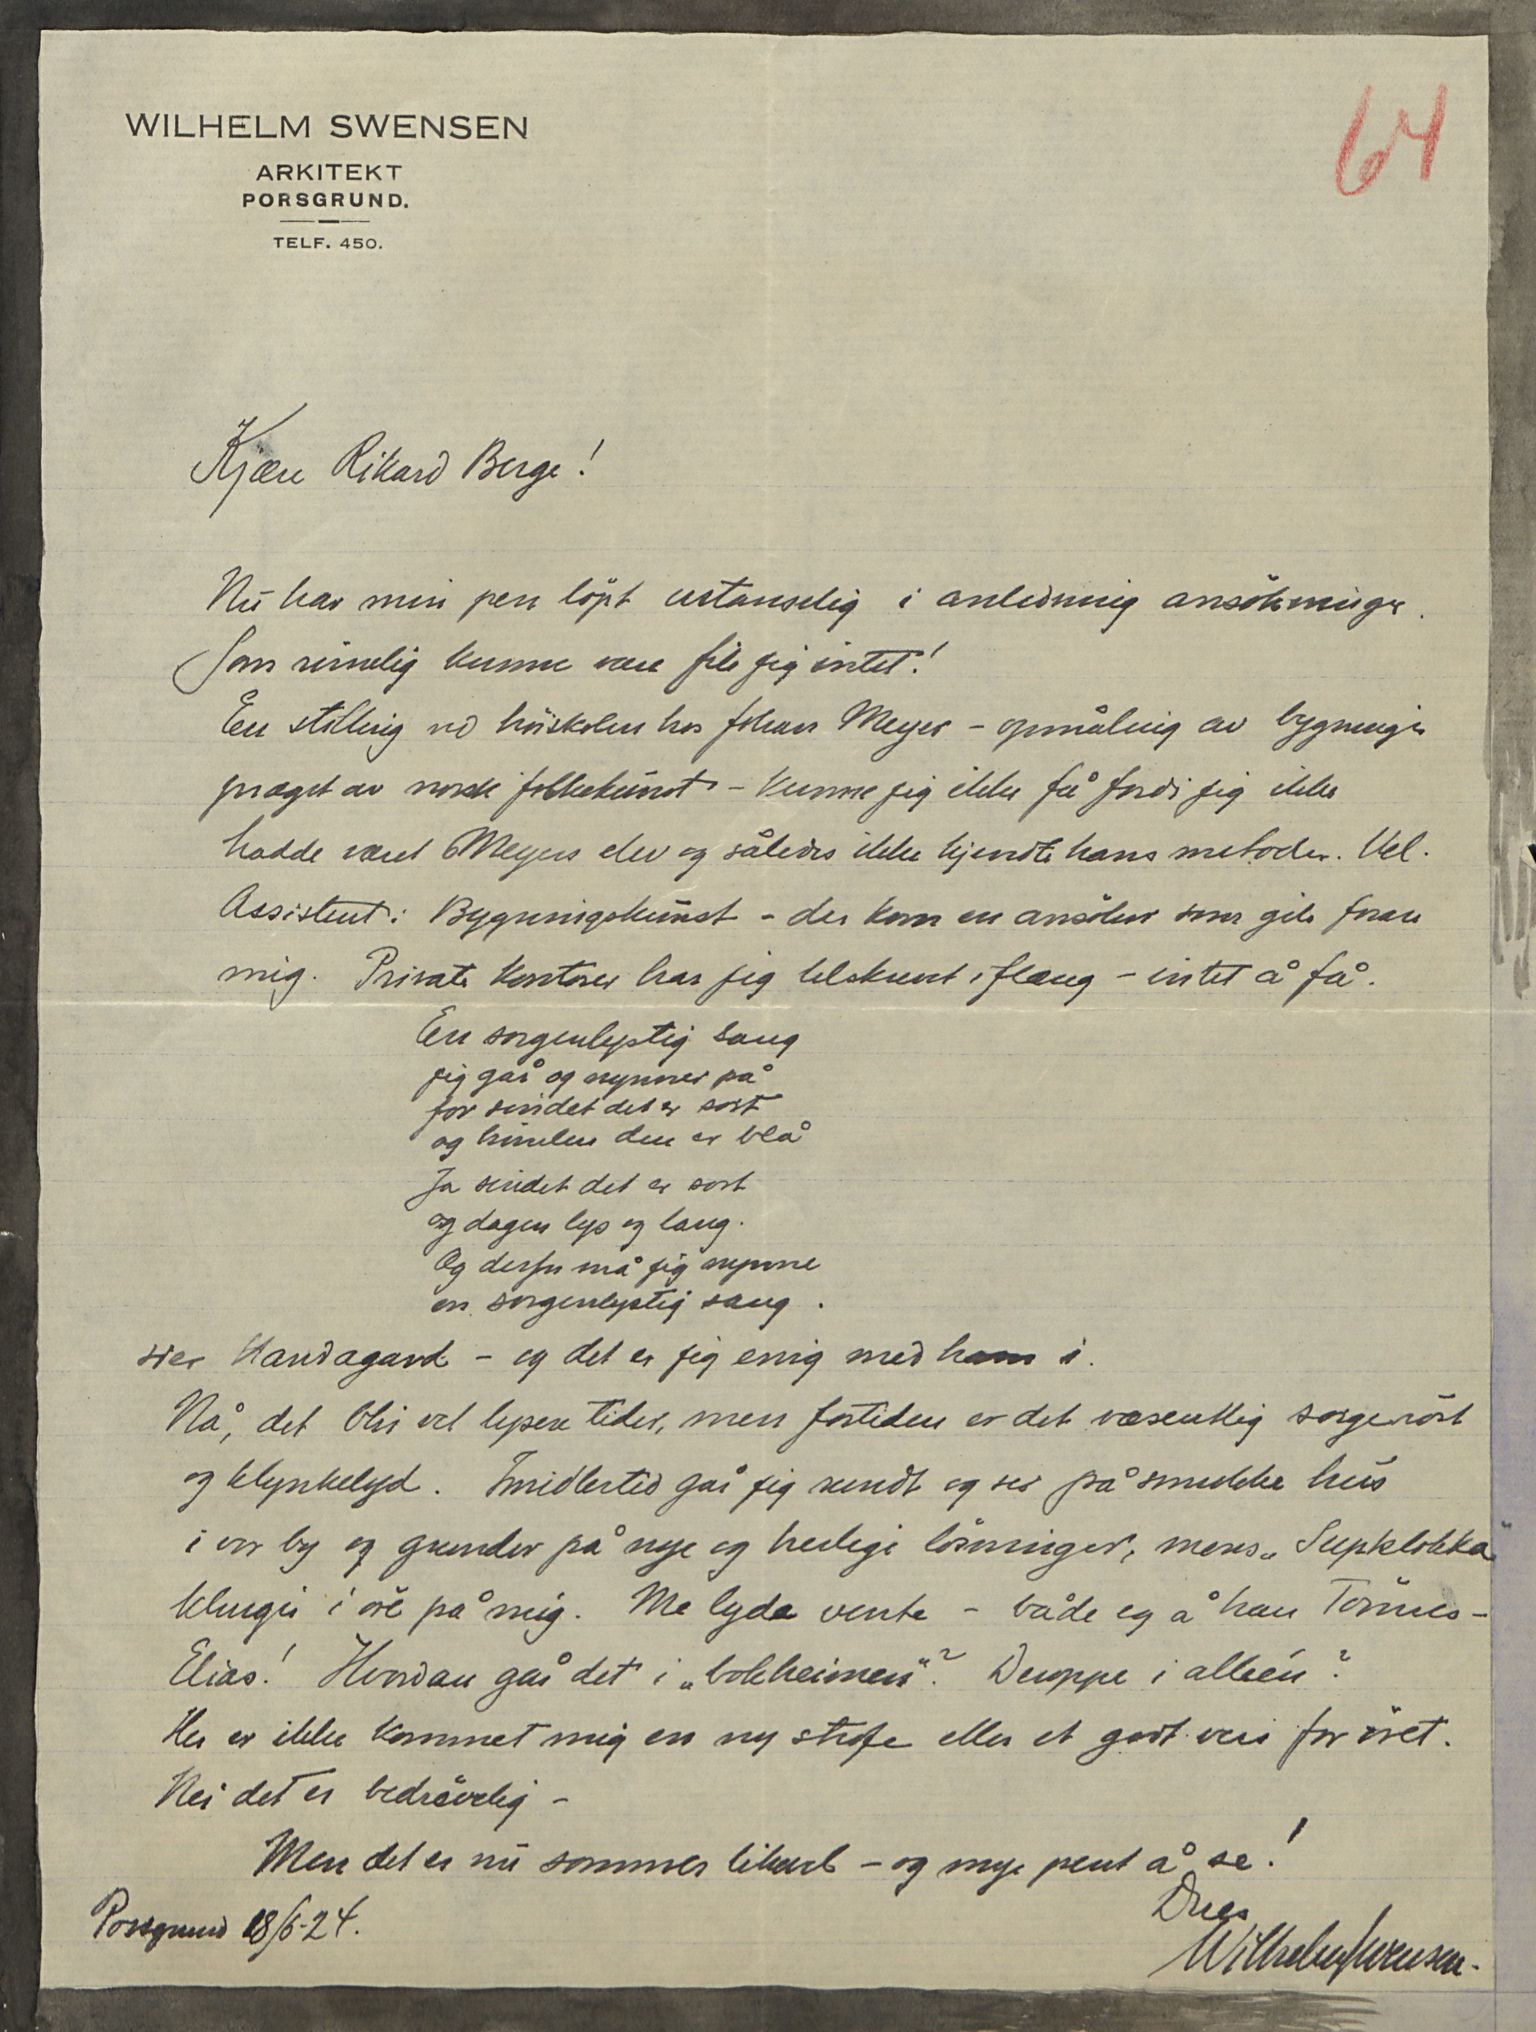 WILHELM SWENSEN
ARKITEKT
PORSGRUND.
TELF. 450.
64
Kjære Rikard Berge!
Nu har min pen löpt ustanselig i anledning ansökninger.
Som rimelig kunne være fik jeg intet!
En stilling ved höiskolen hos Johan Meyer - opmåling av bygninger
præget av norsk folkekunst - kunne jeg ikke få fordi jeg ikke
hadde været Meyers elev og således ikke kjendte hans metoder. Vel.
Assistent i Bygningskunst - der kom en ansöker som gik foran
mig. Private kontorer har jeg tilskrevet i flæng - intet å få.
En sorgenlystig sang
jeg går og nynner på
for sindet det er sort
og himlen den er blå
Ja sindet det er sort
og dagen lys og lang.
Og derfor må jeg nynne
en sorgenlystig sang.
sier Handagard - og det er jeg enig med ham i.
Nå, det blir vel lysere tider, men fortiden er det væsentlig
og klynkelyd. Imidlertid går jeg rundt og ser på smukke hus
i vor by og grunder på nye og herlige lösninger, mens „Supklokka"
klinger i öre på mig. Me lyda vente - både eg å han Tönnes-
Elias! Hvordan går det i „bokheimen"? Druppe i alleén?
Her er ikke kommet mig en ny strofe eller et godt vers for öret.
Nei det er bedrövelig -
Men det er nu sommer likevel - og mye pent å se!
Porsgrund 18/6-24.
Deres
Wilhelm Swensen.